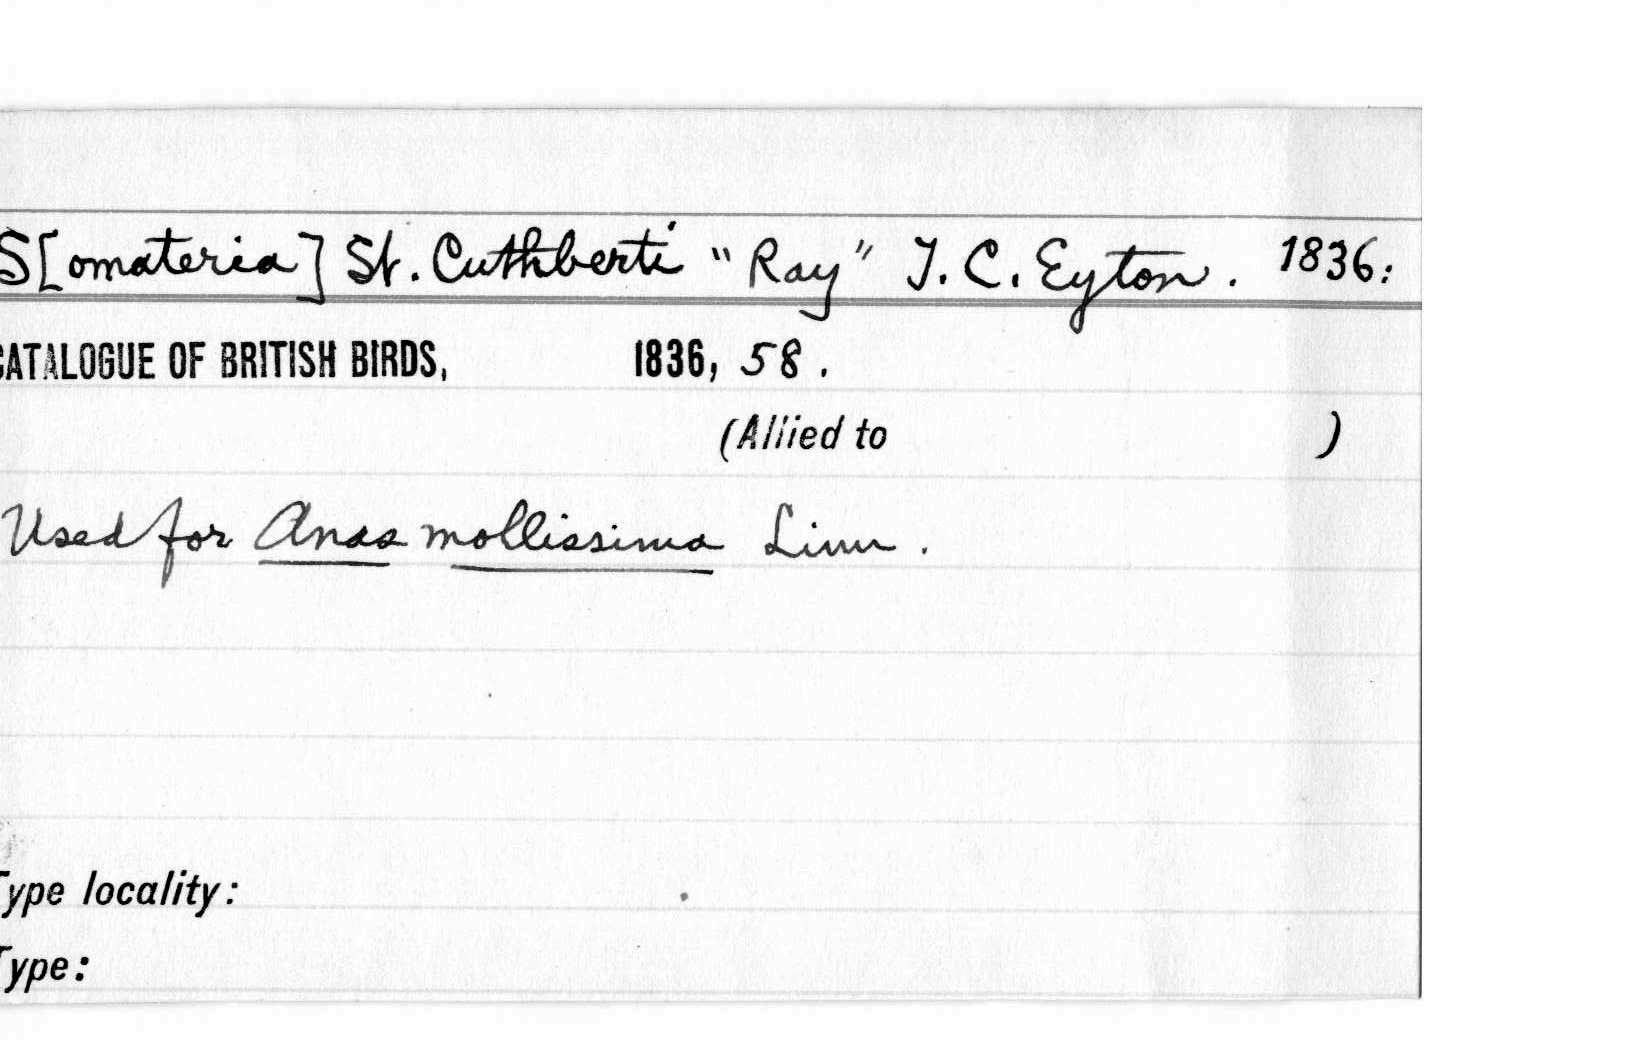 S[omateria] St. Cuthberti "Ray" T. C. Eyton. 1836:
CATALOGUE OF BRITISH BIRDS, 1836, 58.
(Allied to )
Used for Anas mollissima Linn.
Type locality:
Type: